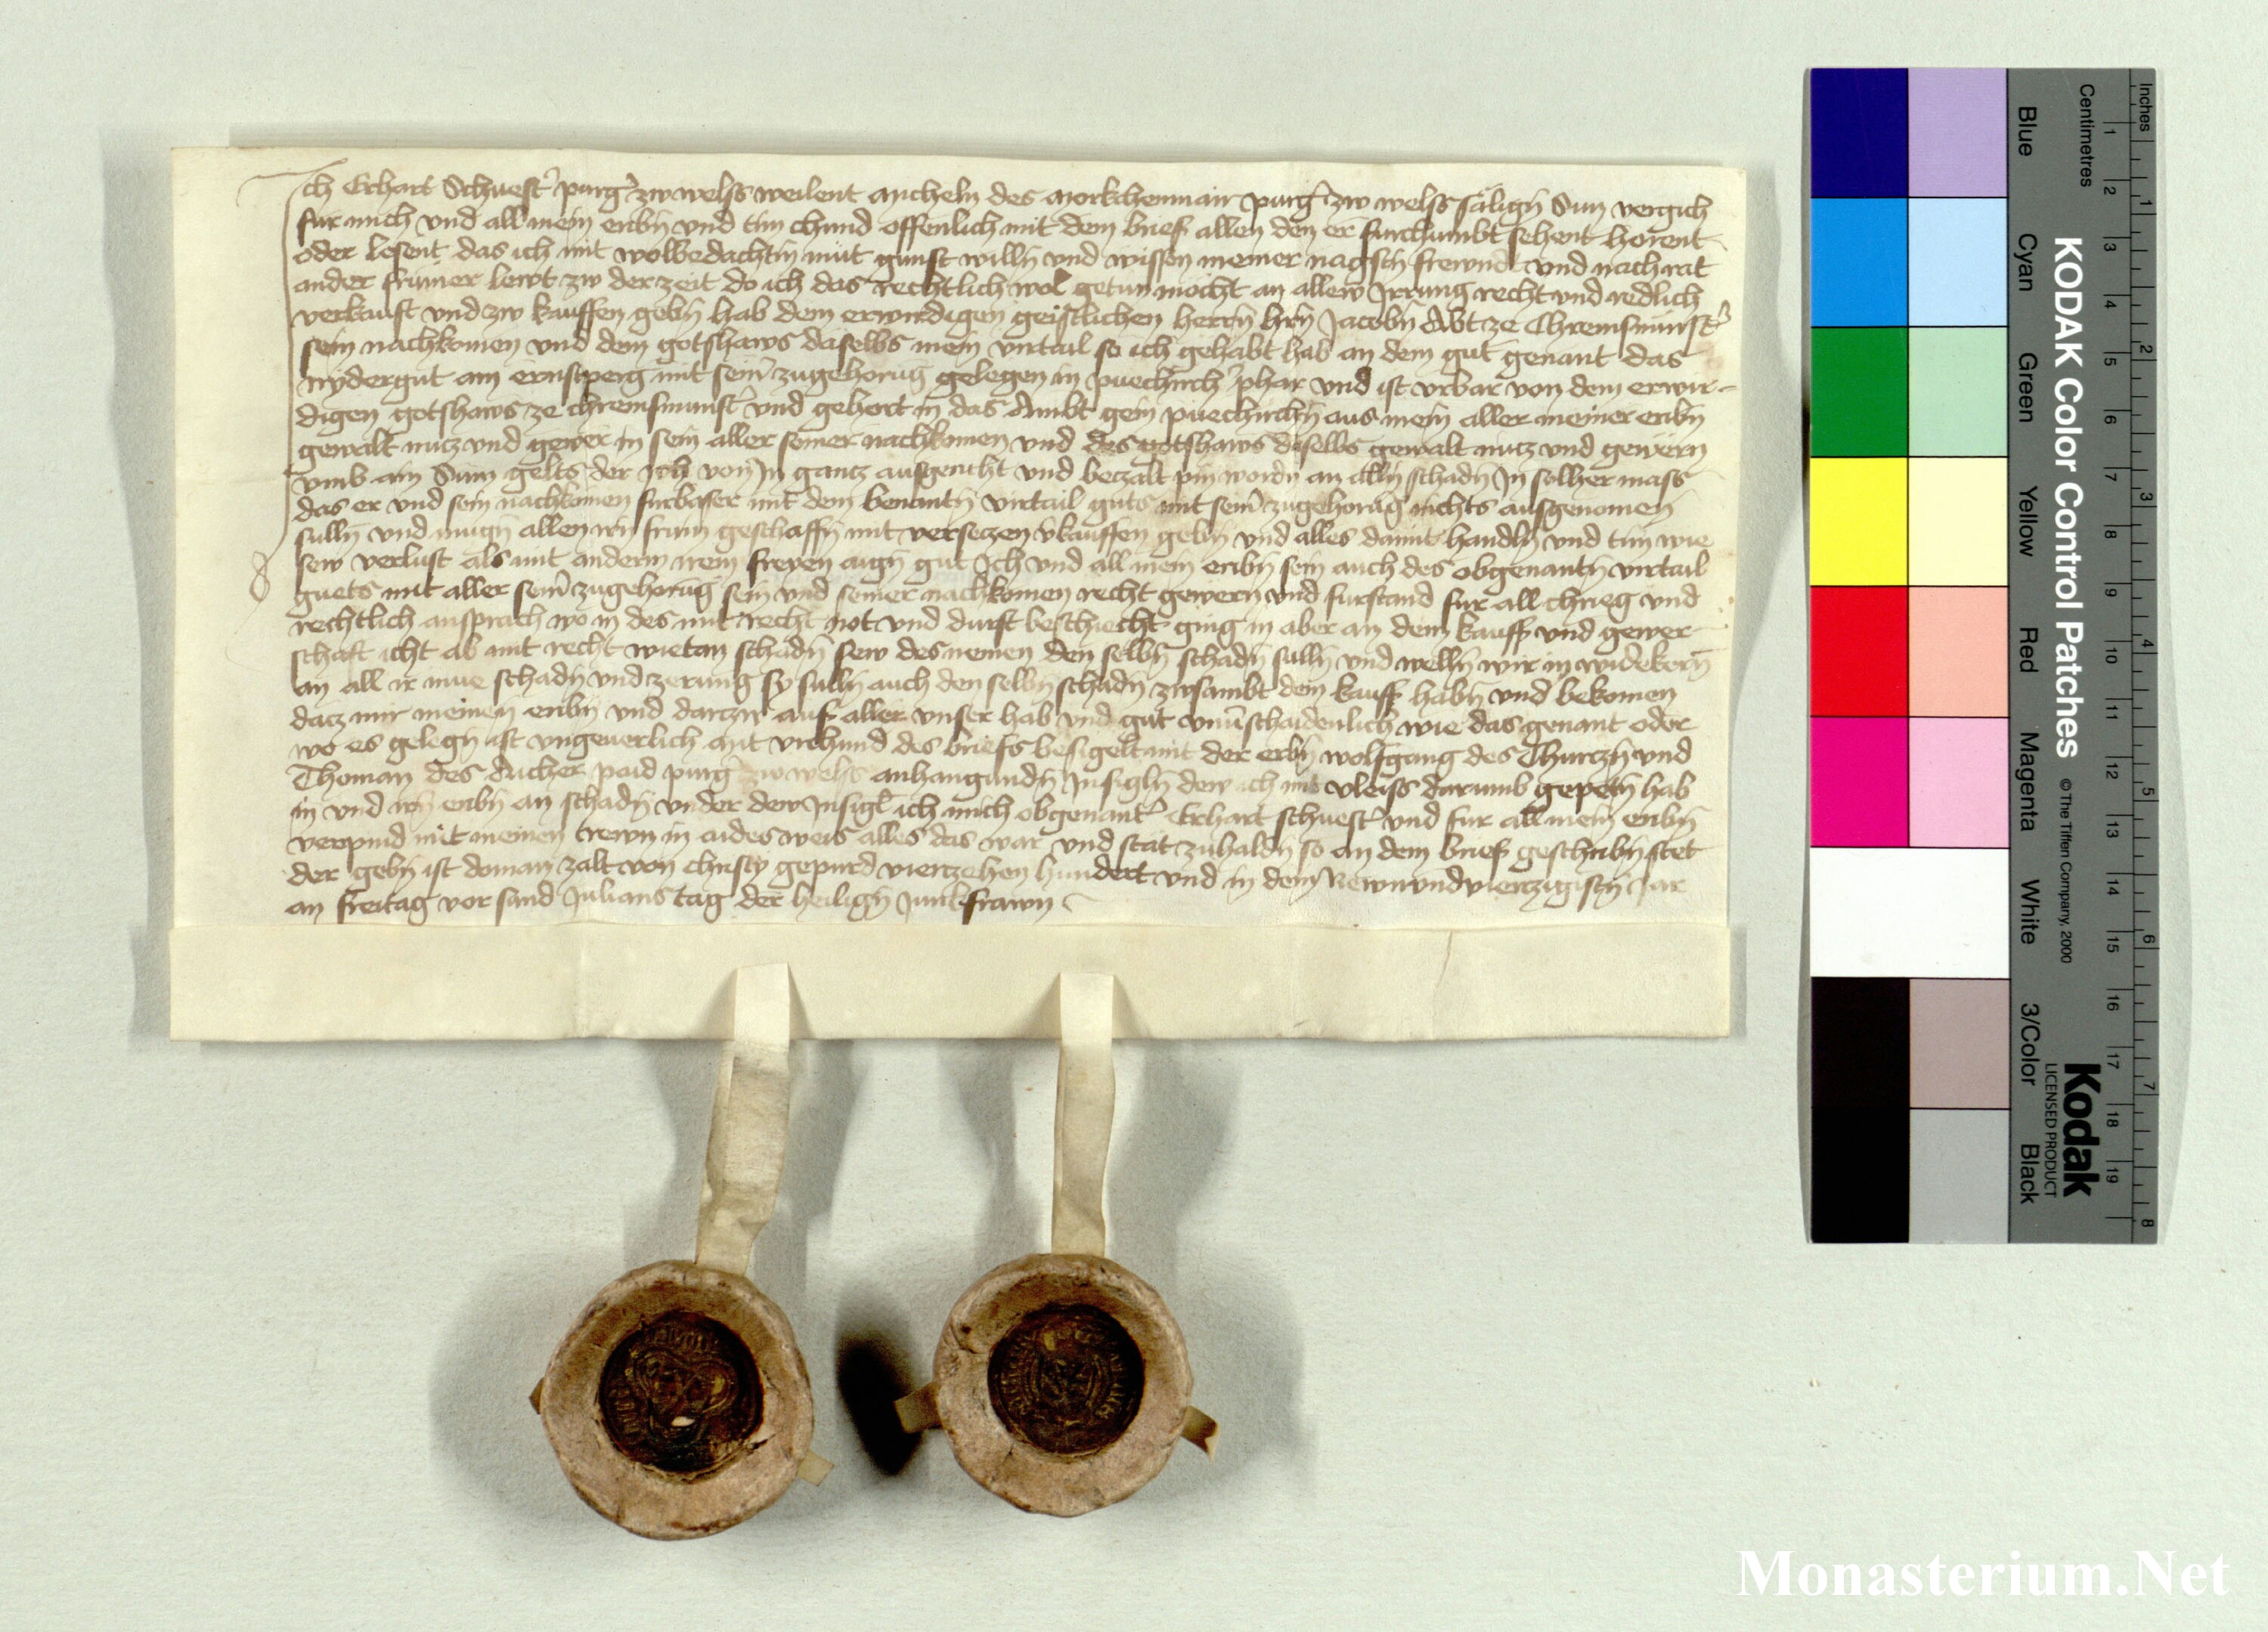 Ich Erhart Schuest' purg' zw welss weilent Micheln des Morkchenmair purg' zw welss säligñ Sun vergich
für mich vnd all mein erbñ vnd tún chund offenlich mit dem brief allen den er fürchumbt sehent hörent
oder lesent das ich mit wolbedachtm müt gunst willñ vnd wissen meiner nagstñ frewnd vnd nach rat
ander frumer lewt zw der zeit do ich das rechtlich wol getun mocht an allew Irrung recht vnd redlich
verkauft vnd zw kauffen gebñ hab dem erwirdigen geistlichen herrñ hrñ Jacobñ Abt ze Chremsmünst'
sein nachkomen vnd dem gotshaws daselbs mein virtail so ich gehabt hab an dem gut genant das
nydergut am ernstperg mit sein' zugehorūg gelegen in puechirch' phar vnd ist vrbar von dem erwir-
digen gotshaws ze chremsmunst' vnd gehort in das Ambt gein puechirchñ aus mein aller meiner erbñ
gewalt nutz vnd gewer in sein aller seiner nachkomen vnd des gotshaws daselbs gewalt nutz vnd gewern
vmb ain Sum gelts der ich von In gantz ausgericht vnd beczalt pin wordñ an allñ schadñ In solher mass
das er vnd sein nachkomen furbaser mit dem benantñ virtail guts mit sein' zugehorūg nichts ausgenomen
sullñ vnd mugñ allen irñ frum geschaffñ mit versetzen v'kauffen gebñ vnd alles damit handlñ vnd tun wie
sew verlust als mit anderm irem freyen aigñ gut Ich vnd all mein erbñ sein auch des obgenantñ virtail
guets mit aller sein' zugehorūg sein vnd seiner nachkomen recht gewern vnd fürstand für all chrieg vnd
rechtlich ansprach wo in des mit recht not vnd durft beschiecht ging in aber an dem kauff vnd gewer-
schaft icht ab mit recht wietan schadñ sew des nemen den selbñ schadñ sullñ vnd wellñ wir in wid'kerñ
an all ir mue schadñ vnd zerung Sy sullñ auch den selbñ schadñ zwsambt dem kauff habñ vnd bekomen
datz mir meinen erbñ vnd dartzw auf aller vnser hab vnd gut vnu'schaidenlich wie das genant oder
wo es gelegñ ist vngeuerlich Mit vrchund des briefs besigelt mit der erbñ wolfgang des Thurtzñ vnd
Thoman des Aicher paid purg' zw wels anhangundñ Insiglñ dew ich mit vleiss darumb gepetñ hab
in vnd irñ erbñ an schadñ vnder dew Insigl ich mich obgenant' Erhart schuest' vnd für all mein erbñ
verpind mit meinen trewn in aides weis alles das war vnd stät zuhaldñ so an dem brief geschribñ stet
der gebñ ist do man zalt von christy gepurd vierzehen hundert vnd in dem Newnvndviertzigistñ Jar
an freitag vor sand Julians tag der heiligñ Junkfrawn
KODAK Color Control Patches © The Tiffen Company, 2000
Kodak
LICENSED PRODUCT
Inches 1 2 3 4 5 6 7 8
Centimetres 1 2 3 4 5 6 7 8 9 10 11 12 13 14 15 16 17 18 19
Blue Cyan Green Yellow Red Magenta White 3/Color Black
Monasterium.Net